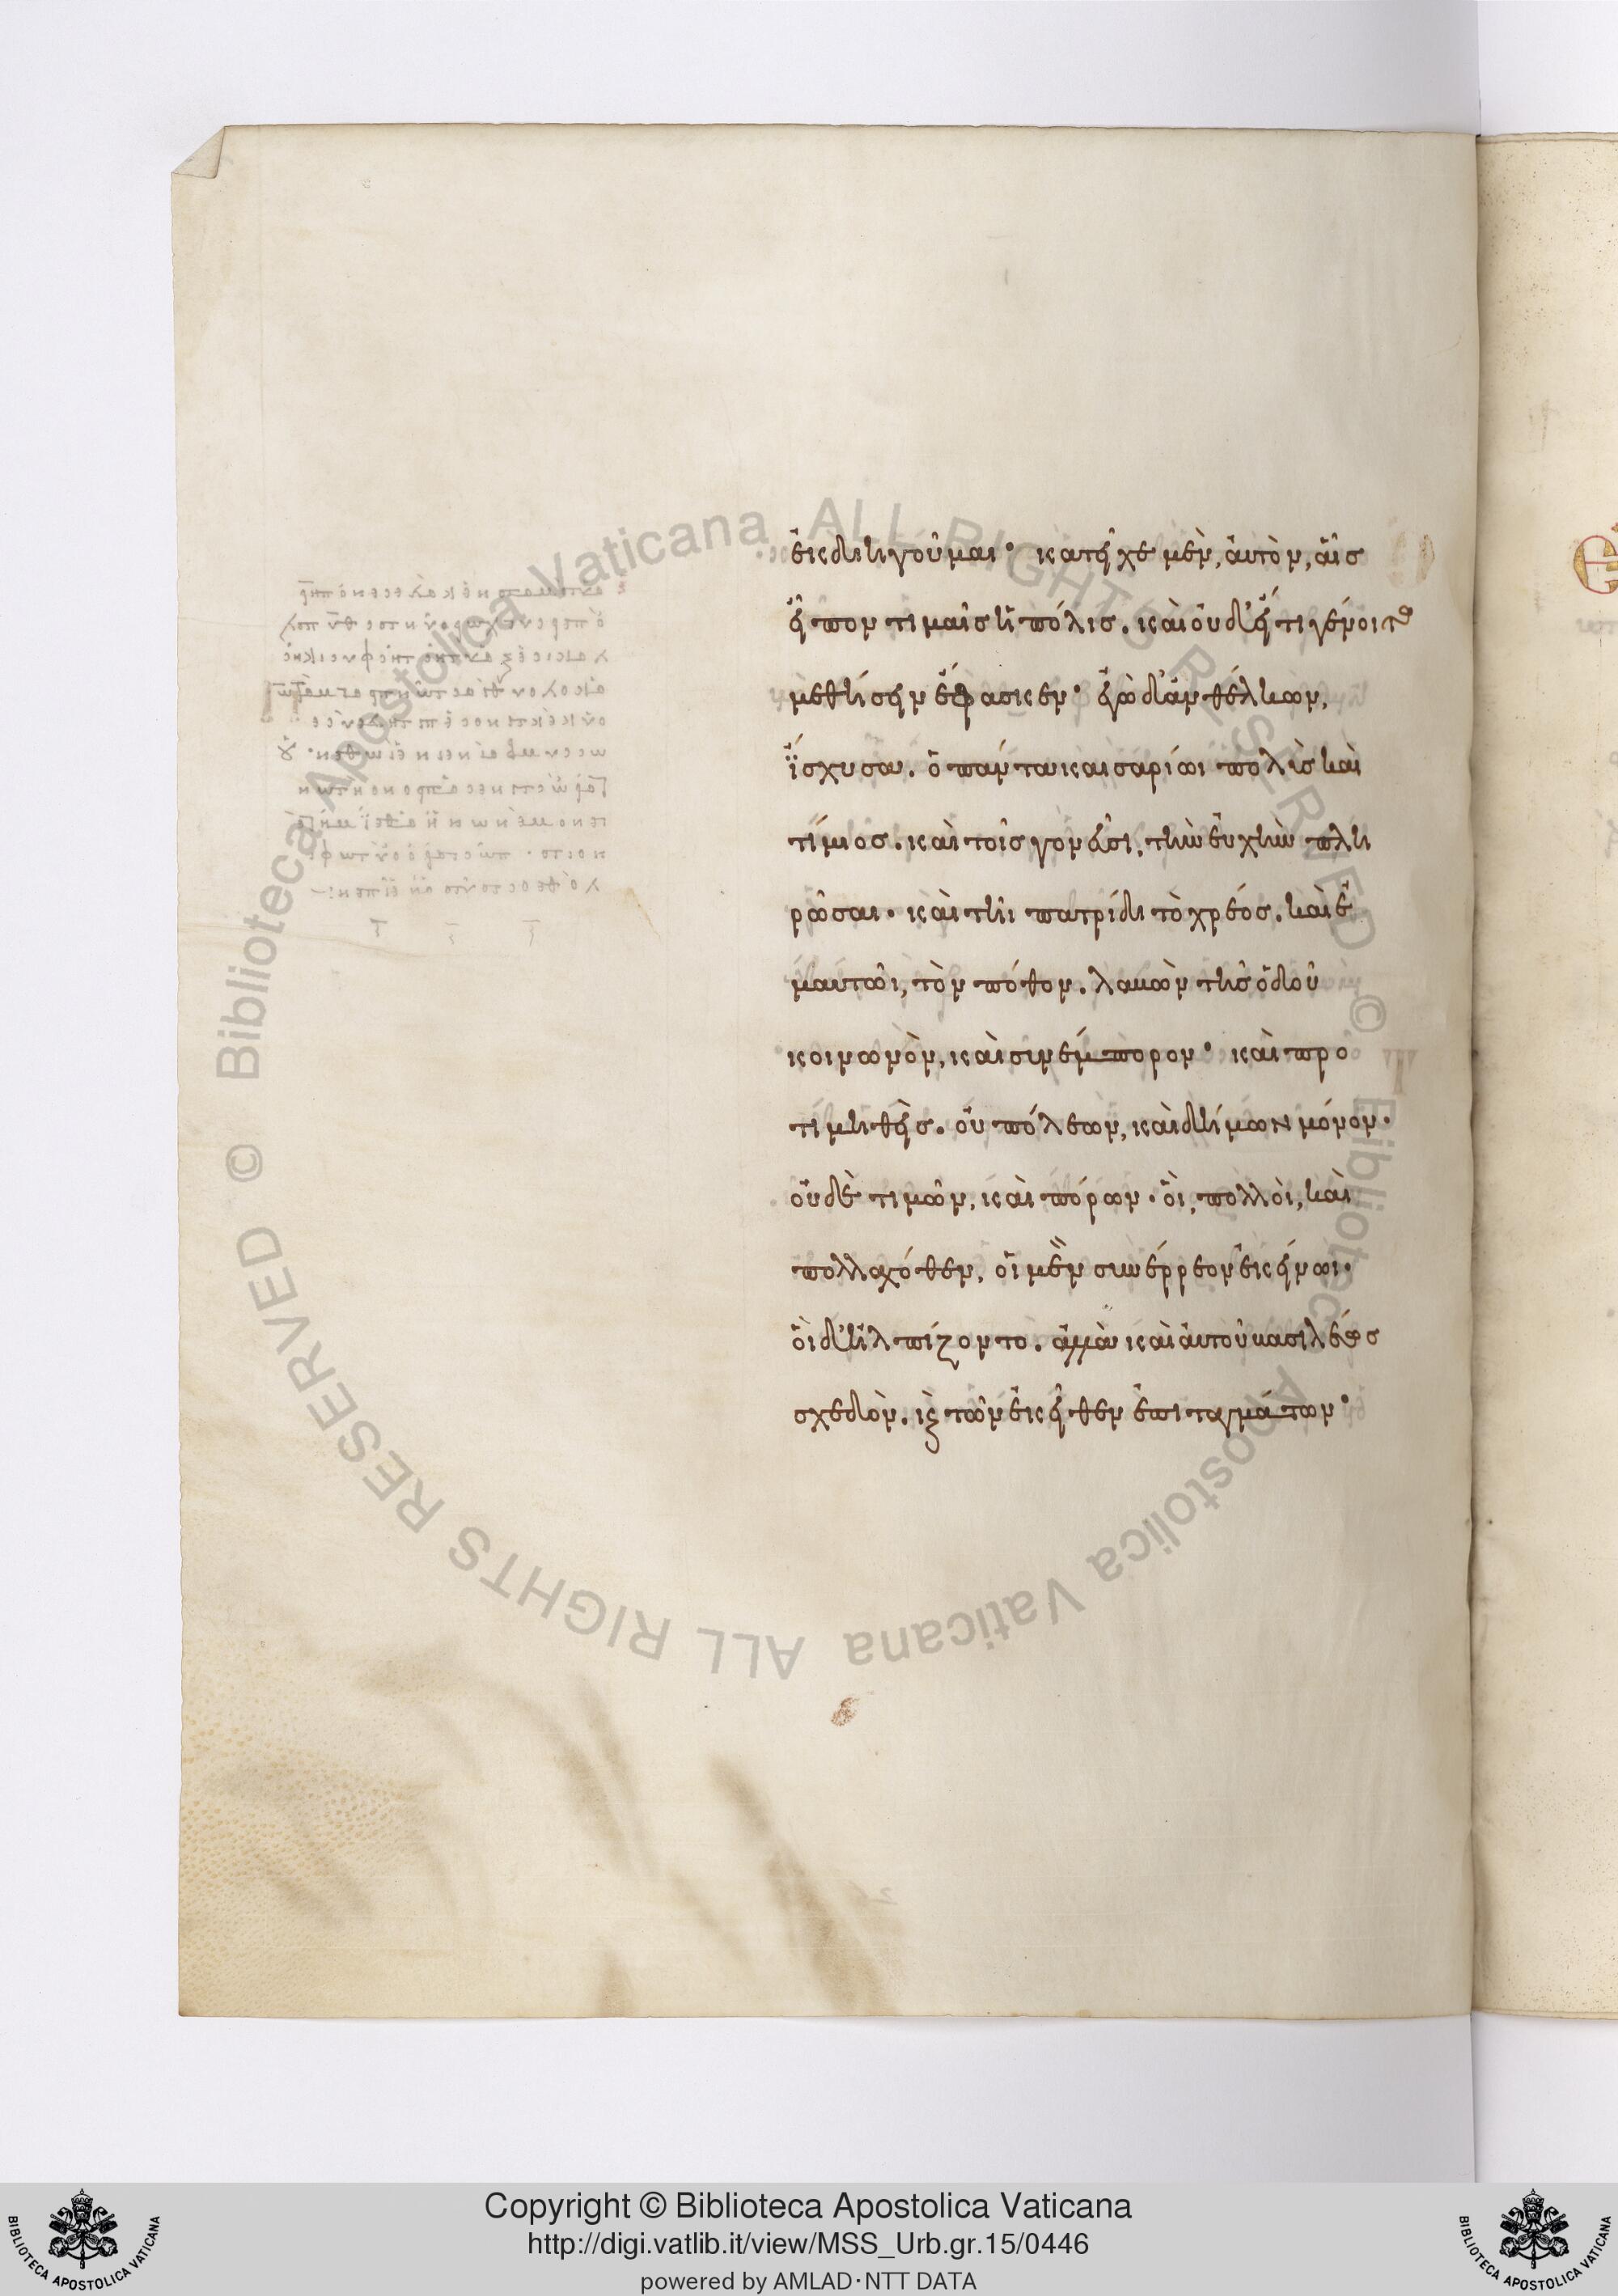 ἐκδιηγοῦμαι· κατεῖχε μὲν, αὐτὸν, αἷς
εἶπον τιμαῖς ἡ πόλις. καὶ οὐδ' εἴ τι γένοιτο
μεθήσειν ἔφασκεν· ἐγὼ δ' ἀνθέλκων,
ἴσχυσα. ὁ πάντα καισαρίωι πολὺς καὶ
τίμιος. καὶ τοῖς γονεῦσι, τὴν εὐχὴν πλη
ρῶσαι. καὶ τῆι πατρίδι τὸ χρέος. καὶ ἐ
μαυτῶι, τὸν πόθον. λαβὼν τῆς ὁδοῦ
κοινωνὸν, καὶ συνέμπορον· καὶ προ
τιμηθεὶς. οὐ πόλεων, καὶ δήμων μόνον.
οὐδὲ τιμῶν, καὶ πόρων. οἳ, πολλοὶ, καὶ
πολλαχόθεν, οἱ μὲν συνέρρεον ἐκείνωι.
οἱ δ' ἠλπίζοντο. ἀλλὰ καὶ αὐτοῦ βασιλέως
σχεδὸν. κ τῶν ἐκεῖθεν ἐπιταγμάτων·
Copyright © Biblioteca Apostolica Vaticana
http://digi.vatlib.it/view/MSS_Urb.gr.15/0446
powered by AMLAD·NTT DATA
BIBLIOTECA APOSTOLICA VATICANA
BIBLIOTECA APOSTOLICA VATICANA
© Biblioteca Apostolica Vaticana ALL RIGHTS RESERVED © Biblioteca Apostolica Vaticana ALL RIGHTS RESERVED